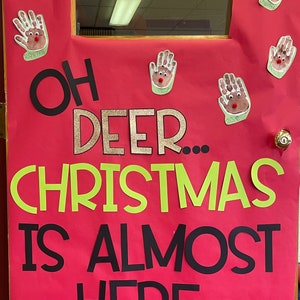 OH
DEER...
CHRISTMAS
IS ALMOST
HERE